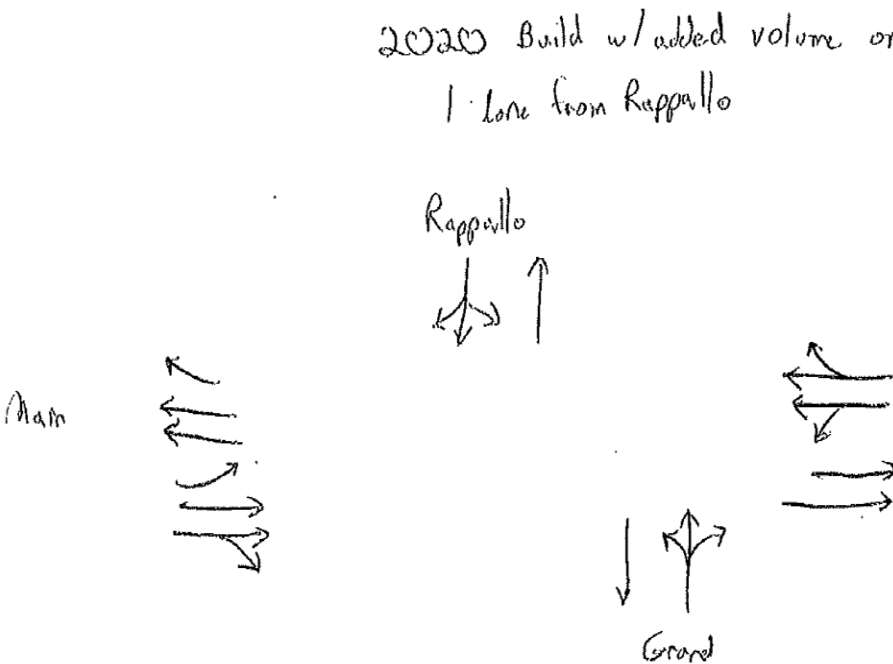 2020 Build w/ added volume or
1 lane from Rappallo
Rappallo
Main
Grand